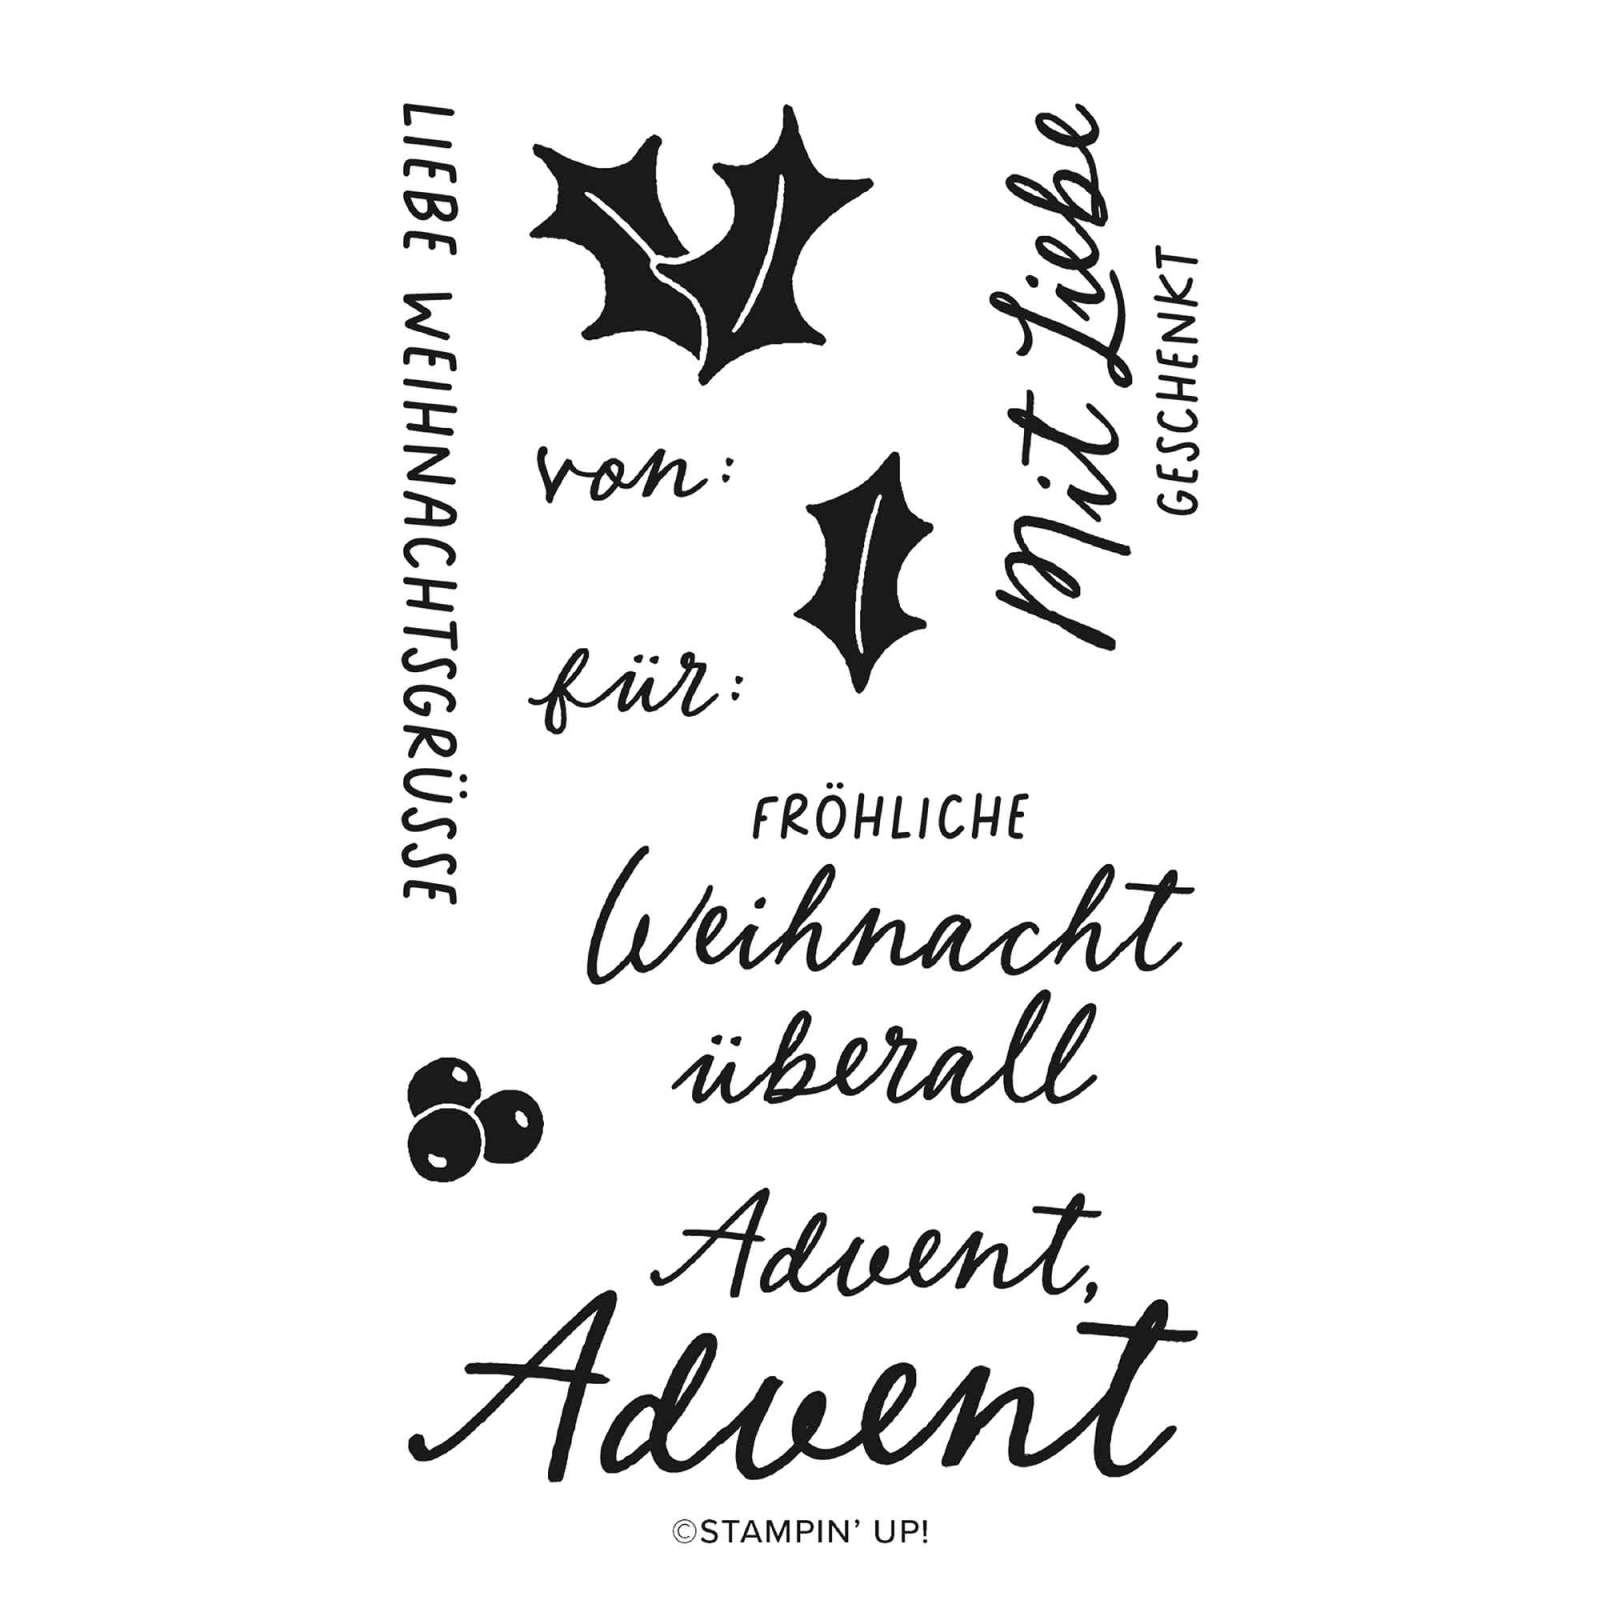 LIEBE WEIHNACHTSGRÜSSE
Mit Liebe
GESCHENKT
von:
für:
FRÖHLICHE
Weihnacht
überall
Advent,
Advent
©STAMPIN’ UP!